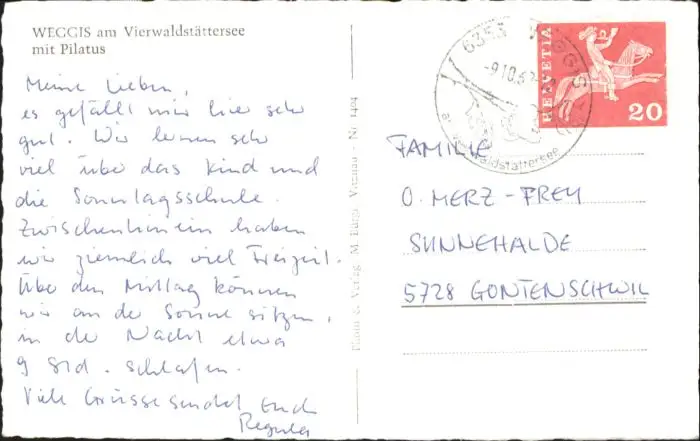 WEGGIS am Vierwaldstättersee
mit Pilatus
Meine Lieben,
es gefällt mir hier sehr
gut. Wir lernen sehr
viel über das Kind und
die Sonntagsschule.
Zwischenhinein haben
wir ziemlich viel Freizeit.
Über den Mittag können
wir an der Sonne sitzen,
in der Nacht etwa
9 Std. schlafen.
Viele Grüsse sendet Euch
Regula
Photo & Verlag M. Bürgi, Vitznau - Nr. 1404
6353 WEGGIS
-9.10.6
am Vierwaldstättersee
HELVETIA
20
FAMILIE
O. MERZ-FREY
SUNNEHALDE
5728 GONTENSCHWIL